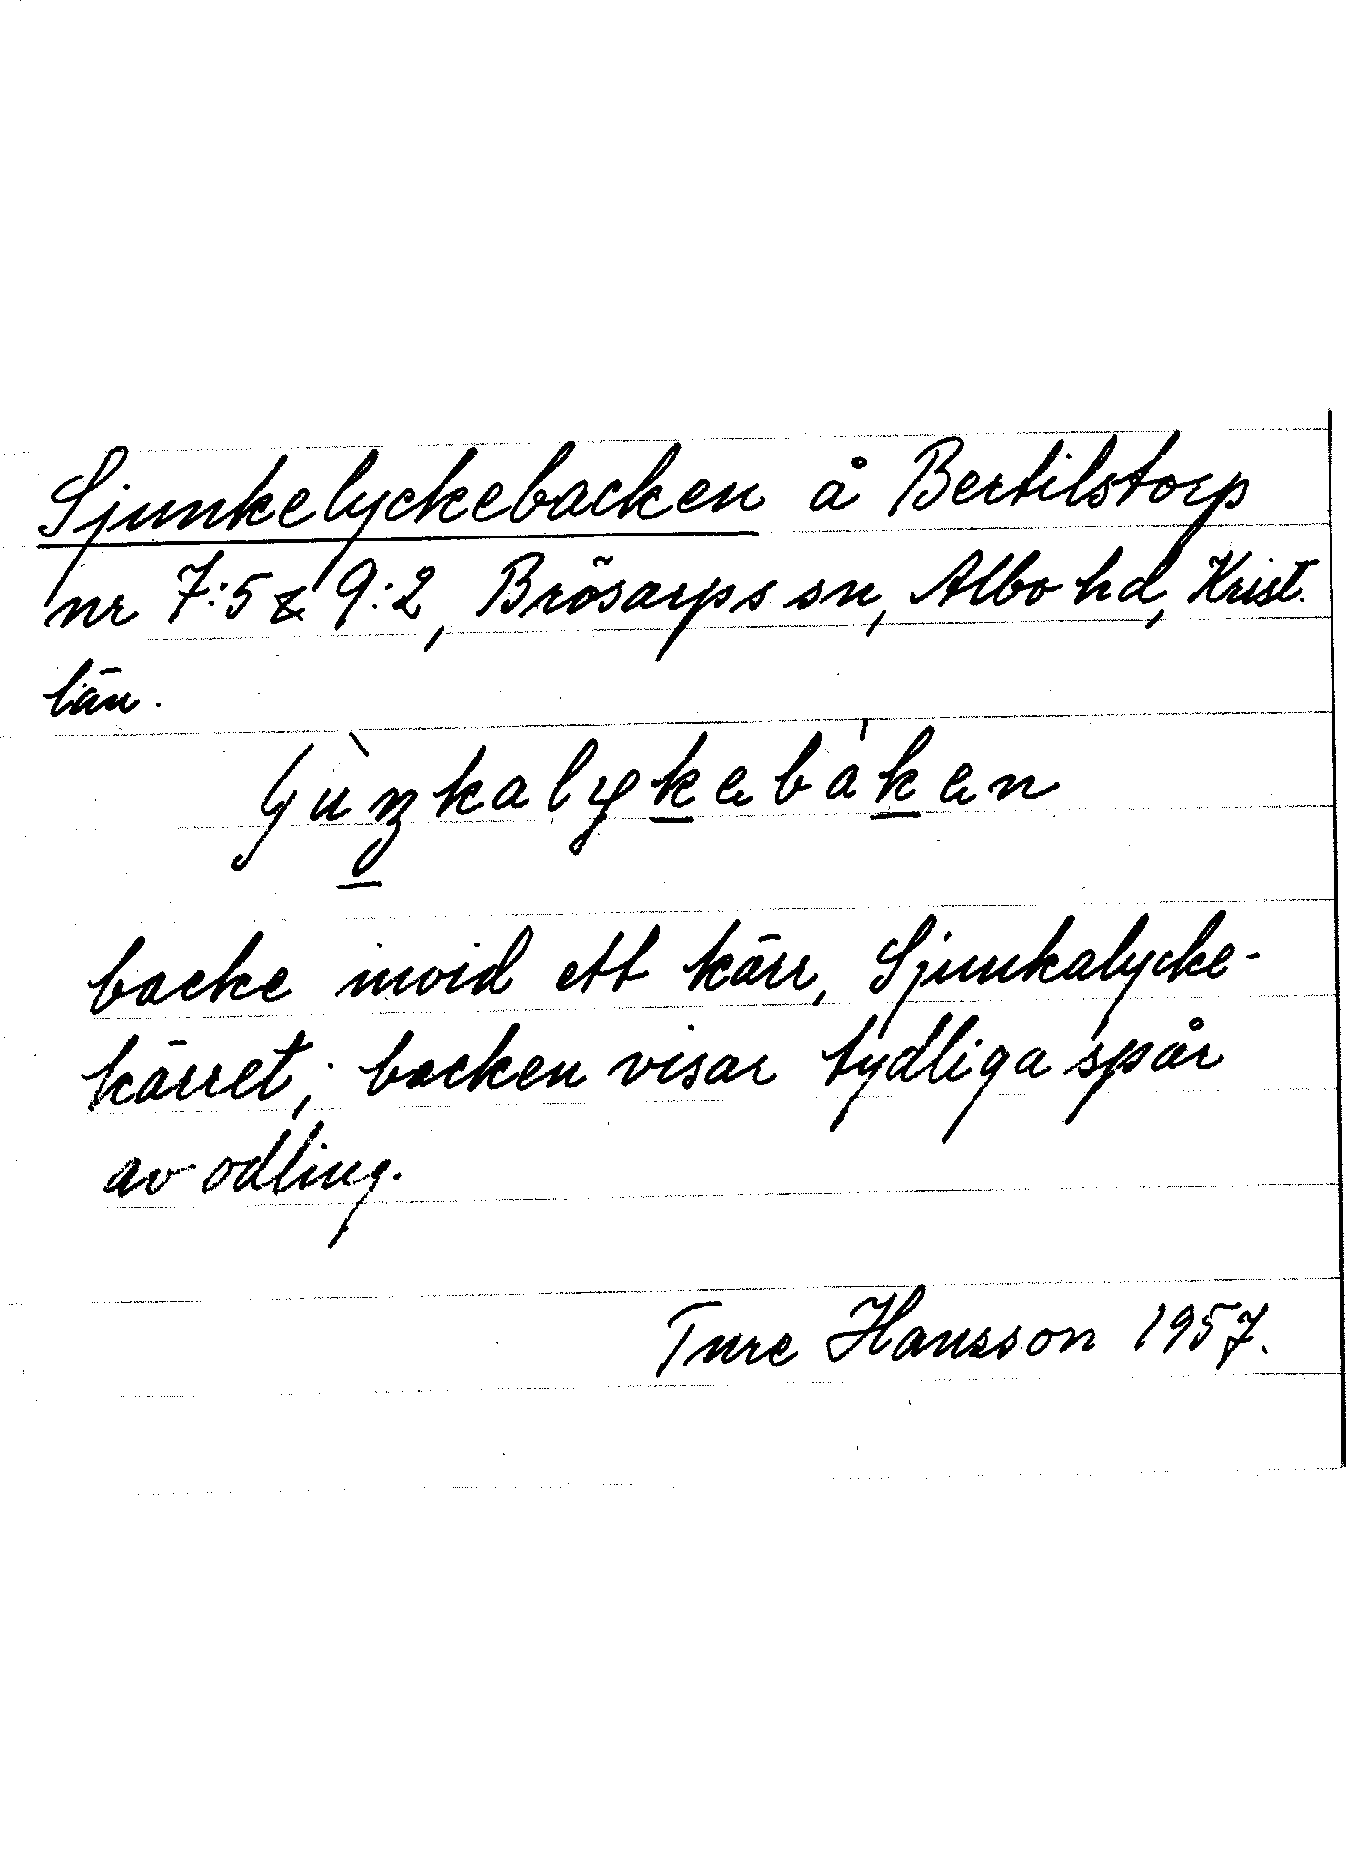 Sjunkelyckebacken å Bertilstorp
nr 7:5 & 9:2, Brösarps sn, Albo hd, Krist.
län.
backe invid ett kärr, Sjunkalycke-
kärret; backen visar tydliga spår
av odling.
Ture Hansson 1957.